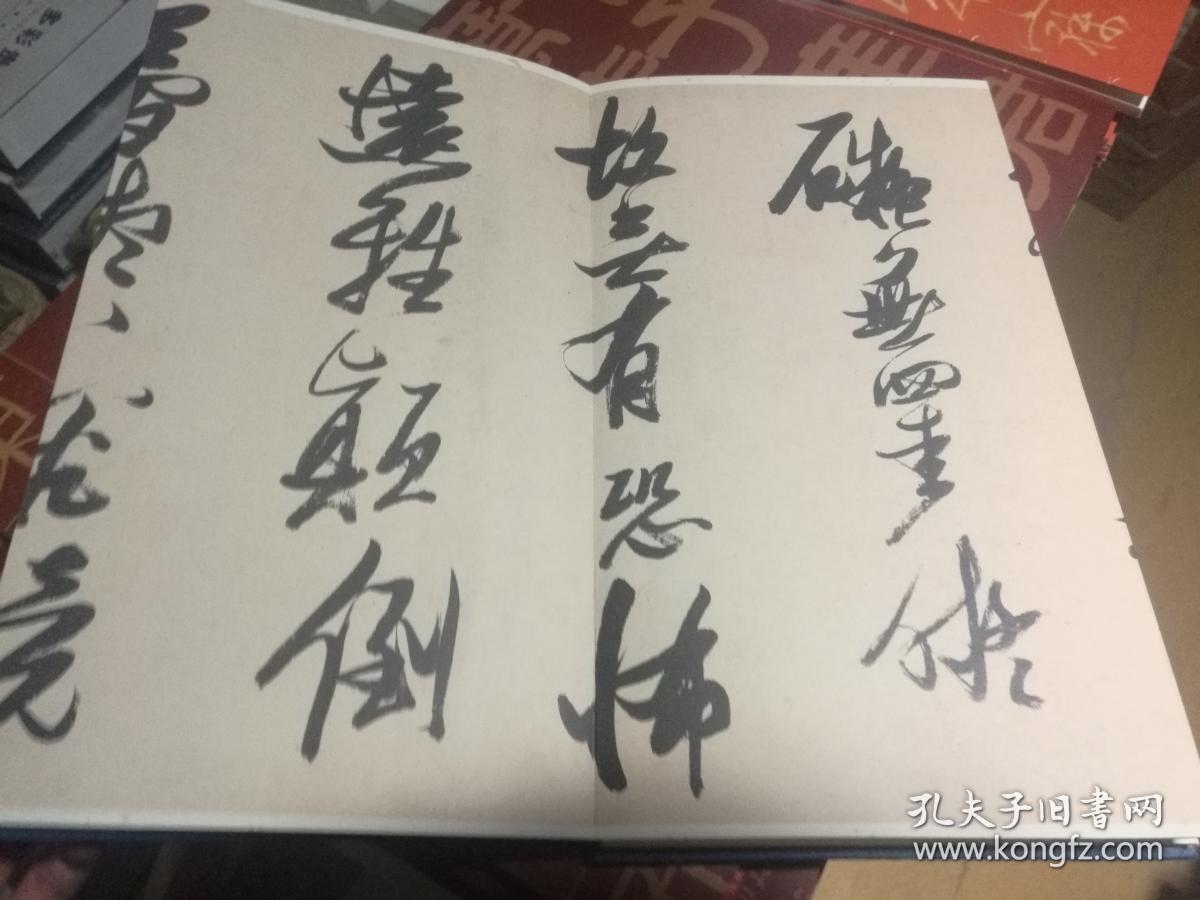 礙無罣礙
故無有恐怖
遠離顛倒
夢想究竟
孔夫子旧书网
www.kongfz.com